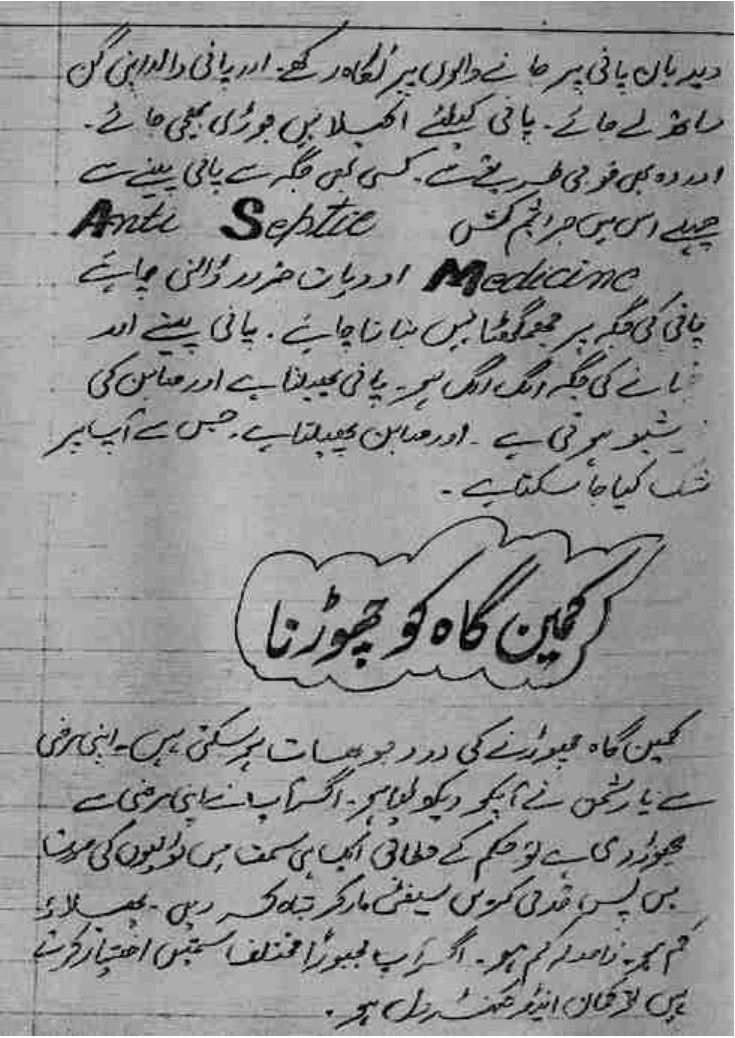 دید بان پانی پر جانے والوں پر نگاہ رکھے۔ اور پانی والا اپنی گن
ساتھ لے جائے۔ پانی کیلئے اکیلا نہیں جوڑی بھیجی جائے۔
اور وہ بھی فوجی طریقے سے۔ کسی بھی جگہ سے پانی پینے سے
پہلے اس میں جراثیم کش Anti Septic
Medicine ادویات ضرور ڈالنی چاہئے
پانی کی جگہ پر جمگھٹا نہیں بنانا چاہئے۔ پانی پینے اور
نہانے کی جگہ الگ الگ ہو۔ پانی پھیلتا ہے اور صابن کی
خوشبو ہوتی ہے۔ اور صابن پھیلتا ہے۔ جس سے آپ پر
شک کیا جا سکتا ہے۔
کمین گاہ کو چھوڑنا
کمین گاہ چھوڑنے کی دو وجوہات ہو سکتی ہیں۔ اپنی مرضی
سے یا دشمن نے آپکو دیکھ لیا ہو۔ اگر آپ نے اپنی مرضی سے
چھوڑ دی ہے تو حکم کے مطابق ایک ہی سمت میں ٹولیوں کی صورت
میں پس قدمی کریں سیفٹی مارکر تباہ کر دیں۔ پھیلاؤ
کم ہو۔ فاصلہ کم ہو۔ اگر آپ مجبوراً مختلف سمتیں اختیار کرتے
ہیں تو کمان اینڈ کنٹرول ہو۔